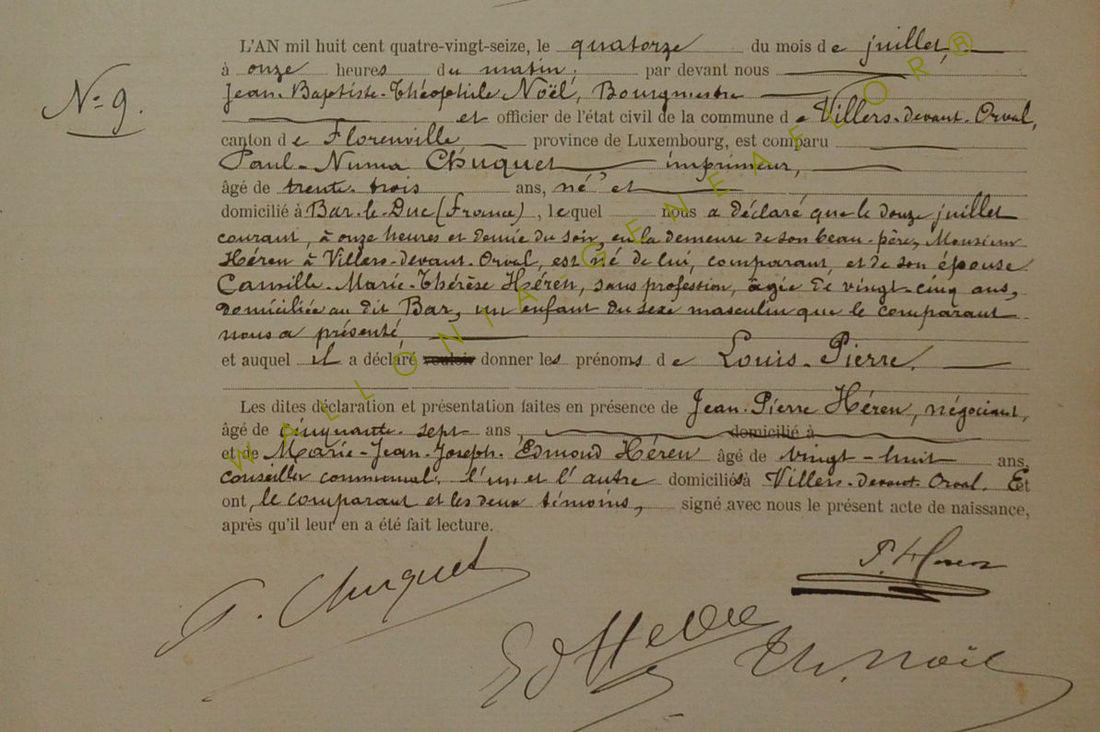 L'AN mil huit cent quatre-vingt-seize, le quatorze du mois de juillet,
à onze heures du matin, par devant nous
N° 9.
Jean-Baptiste-Théophile Noël, Bourgmestre
et officier de l'état civil de la commune de Villers-devant-Orval,
canton de Florenville province de Luxembourg, est comparu
Paul-Numa Chuquet imprimeur,
âgé de trente-trois ans, né et
domicilié à Bar-le-Duc (France), lequel nous a déclaré que le douze juillet
courant, à onze heures et demie du soir, en la demeure de son beau-père, Monsieur
Héren à Villers-devant-Orval, est né de lui, comparant, et de son épouse
Camille-Marie-Thérèse Héren, sans profession, âgée de vingt-cinq ans,
domiciliée au dit Bar, un enfant du sexe masculin que le comparant
nous a présenté,
et auquel il a déclaré vouloir donner les prénoms de Louis-Pierre.
Les dites déclaration et présentation faites en présence de Jean-Pierre Héren, négociant,
âgé de cinquante-sept ans, domicilié à
et de Marie-Jean-Joseph-Edmond Héren âgé de vingt-huit ans,
conseiller communal, l'un et l'autre domiciliés à Villers-devant-Orval. Et
ont, le comparant et les deux témoins, signé avec nous le présent acte de naissance,
après qu'il leur en a été fait lecture.
P. Héren
P. Chuquet
Ed Héren
Th. Noël
WALLONIA GENEAFLOR®